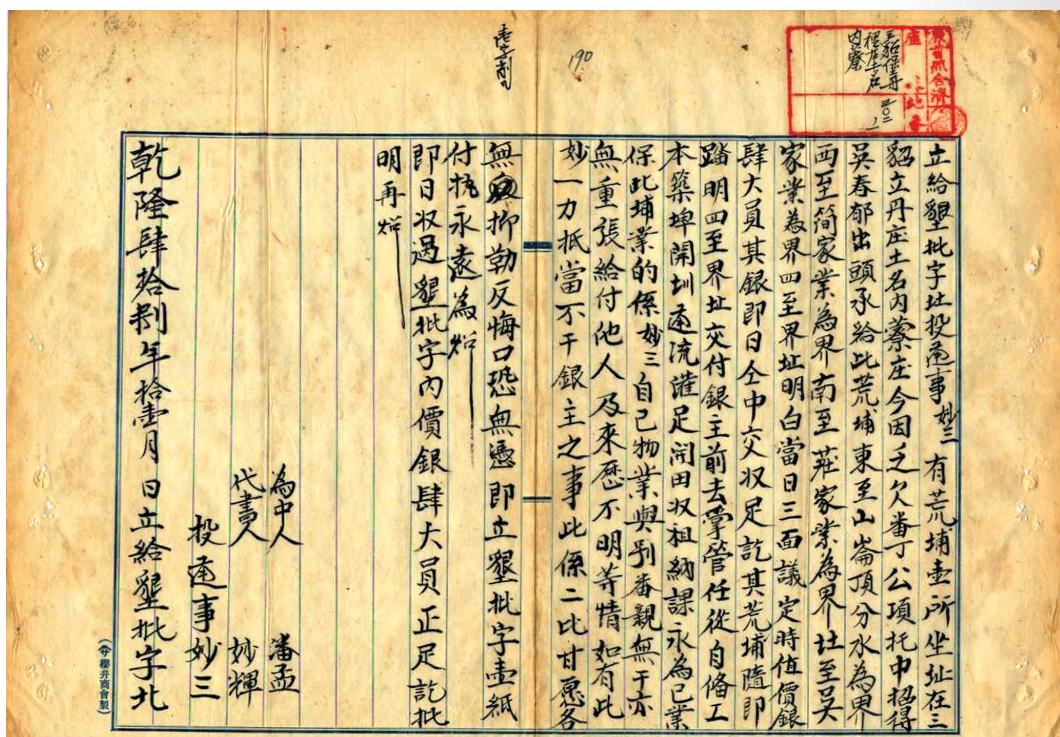 立給墾批字北投通事妙三有荒埔壹所坐址在三
貂立丹庄土名內藔庄今因乏欠番丁公項托中招得
吳春郁出頭承給此荒埔東至山崙頂分水為界
西至簡家業為界南至莊家業為界北至吳
家業為界四至界址明白當日三面議定時值價銀
肆大員其銀即日仝中交收足訖其荒埔隨即
踏明四至界址交付銀主前去掌管任從自備工
本築埤開圳通流灌足開田収租納課永為己業
保此埔業的係妙三自己物業與別番親無干亦
無重張給付他人及來歷不明等情如有此
妙一力抵當不干銀主之事此係二比甘愿各
無抑勒反悔口恐無憑即立墾批字壹紙
付执永遠為炤
即日収過墾批字內價銀肆大員正足訖批
明再炤
為中人 潘孟
代書人 妙輝
投通事妙三
乾隆肆拾捌年拾壹月 日立給墾批字北
190
三貂保丹
裡庄土名
內藔
三〇二
櫻井商會製